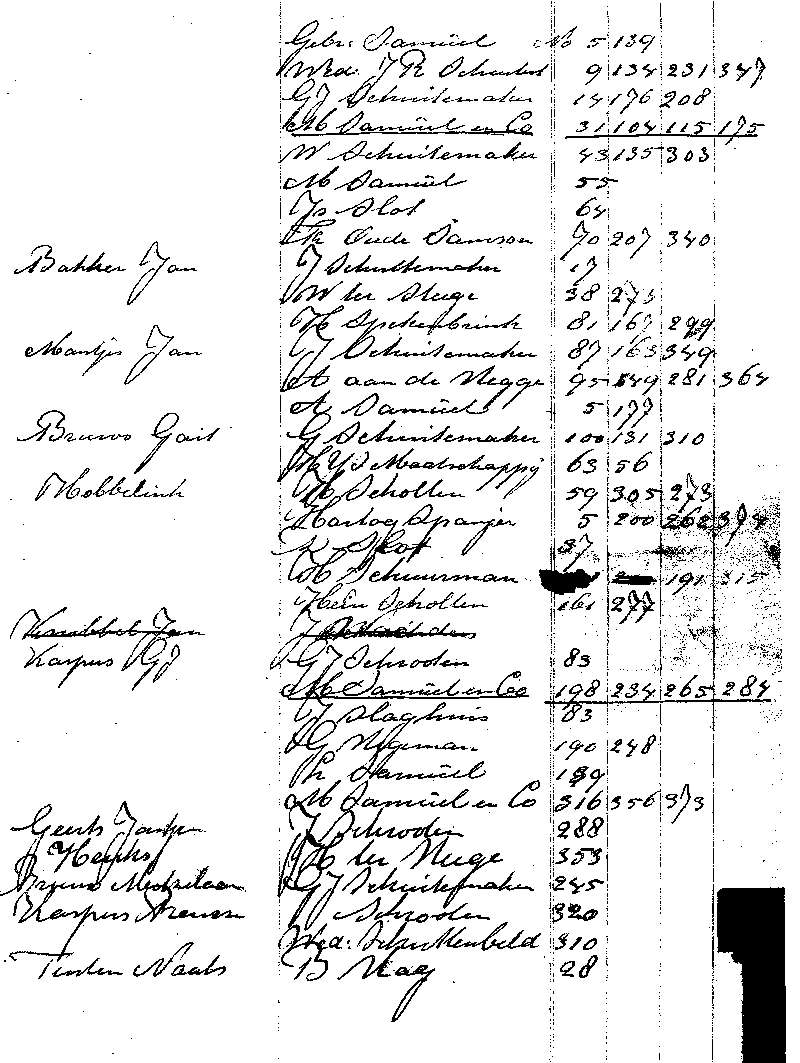 Gebr. Samuël No 5 139
Wed. J R Schuitert 9 134 231 347
GJ Schuitemaker 14 176 208
M Samuël en Co 31 104 115 175
W Schuitemaker 43 135 303
M Samuël 55
Js Slot 64
Oude Samson 70 207 340
Bakker Jan J Schuitemaker 17
W ter Stege 38 275
H Spekenbrink 81 167 299
Mantjes Jan GJ Schuitemaker 87 163 349
A aan de Stegge 95 149 281 364
A Samuël 5 177
Bruins Gait G Schuitemaker 100 131 310
Maatschappij 63 56
Hobbelink H Scholten 59 305 273
Hartog Spanjer 5 200 262 374
K Slot 37
W Schuurman 191 315
Hein Scholten 161 277
Knubbel Jan
Karpus GJ GJ Schrooten 83
M Samuël en Co 198 234 265 284
J Slaghuis 83
G Nijeman 190 248
Ph Samuël 139
M Samuël en Co 316 356 373
Geerts J Schrooten 288
H ter Stege 353
Bruins Metselaar GJ Schuitemaker 245
Karpus J Schrooten 320
Wed: Schuttenbeld 310
Tinten Naats B Slag 28